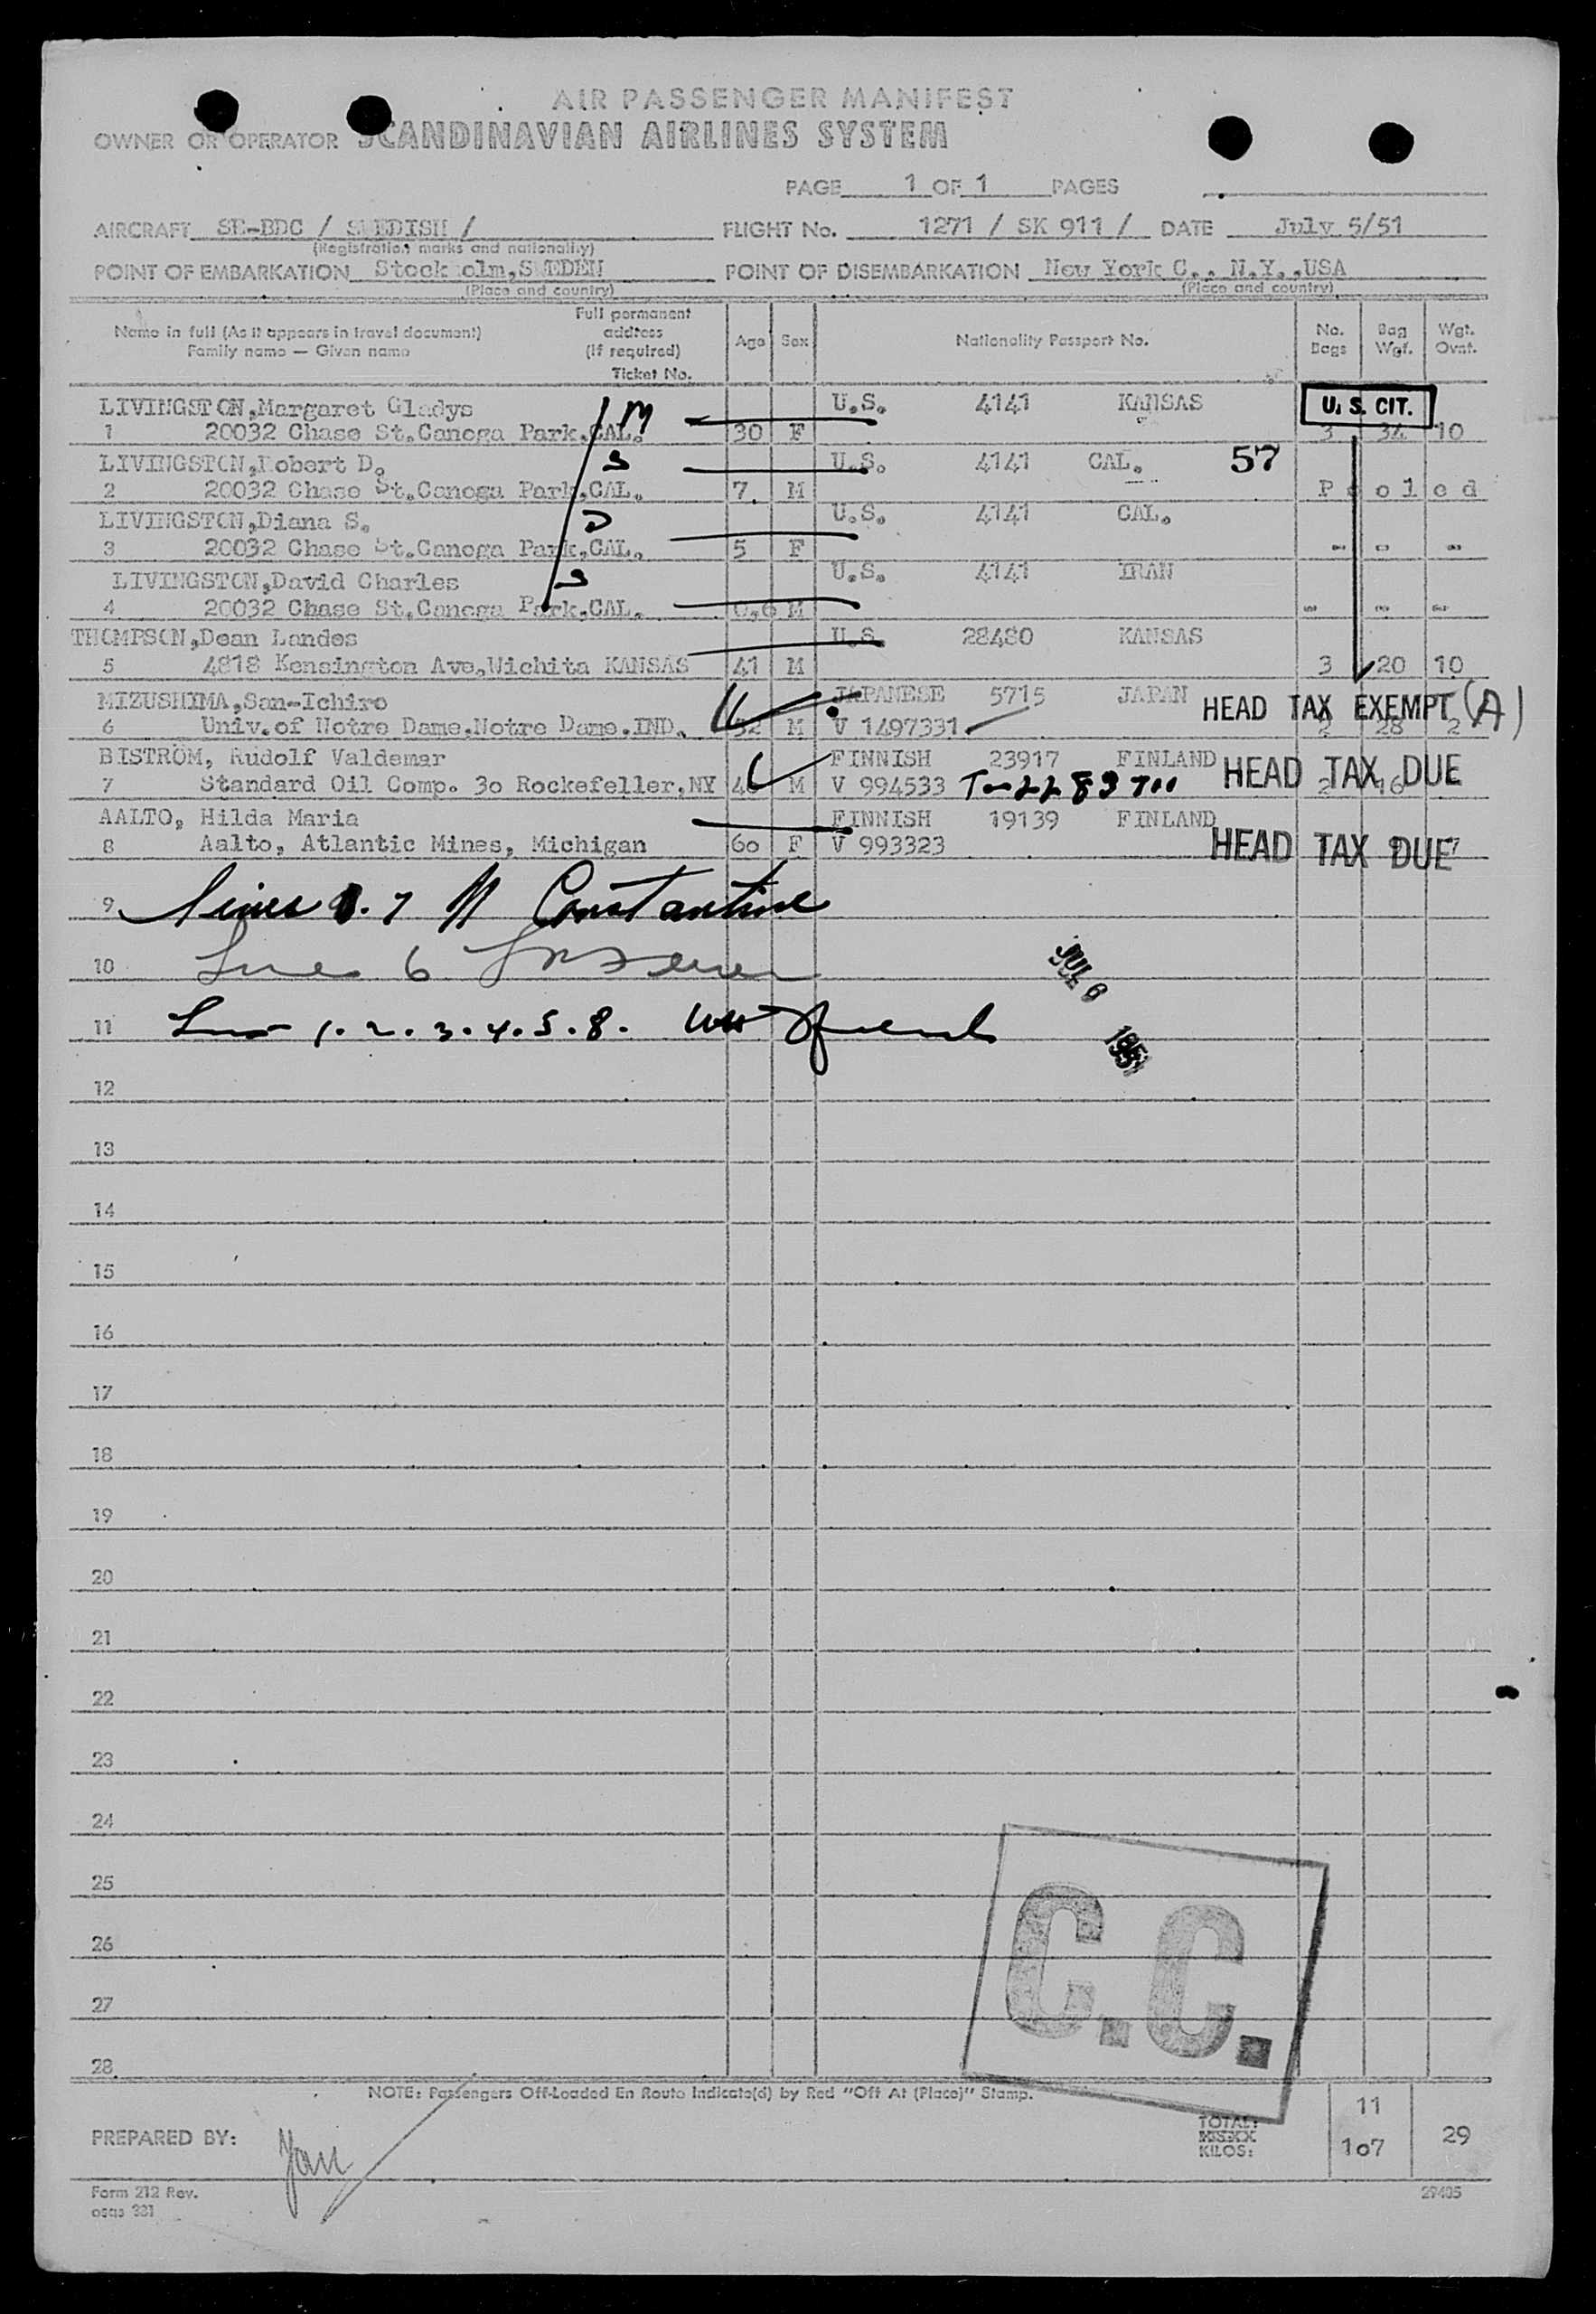 AIR PASSENGER MANIFEST
OWNER OR OPERATOR SCANDINAVIAN AIRLINES SYSTEM
PAGE 1 OF 1 PAGES
AIRCRAFT SE-BDC / SWEDISH / FLIGHT No. 1271 / SK 911 / DATE July 5/51
(Registration marks and nationality)
POINT OF EMBARKATION Stock olm,SWEDEN POINT OF DISEMBARKATION New York C., N.Y.,USA
(Place and country) (Place and country)
Name in full (As it appears in travel document) Family name — Given name
Full permanent address (If required) Ticket No.
Age Sex Nationality Passport No. No. Bags Bag Wgt. Wgt. Ovnt.
LIVINGSTON,Margaret Gladys M U.S. 4141 KANSAS U. S. CIT.
1 20032 Chase St.Canoga Park,CAL. 30 F 3 34 10
LIVINGSTON,Robert D. S U.S. 4141 CAL. 57
2 20032 Chase St.Canoga Park,CAL. 7 M P o o l e d
LIVINGSTON,Diana S. D U.S. 4141 CAL.
3 20032 Chase St.Canoga Park,CAL. 5 F - - -
LIVINGSTON,David Charles S U.S. 4141 IRAN
4 20032 Chase St.Canoga Park,CAL. 0,6 M
THOMPSON,Dean Landes U.S. 28480 KANSAS
5 4818 Kensington Ave,Wichita KANSAS 41 M 3 20 10
MIZUSHIMA,San-Ichiro JAPANESE 5715 JAPAN HEAD TAX EXEMPT (A)
6 Univ.of Notre Dame,Notre Dame,IND. 52 M V 1497331 2 28 2
BISTRÖM, Rudolf Valdemar FINNISH 23917 FINLAND HEAD TAX DUE
7 Standard Oil Comp. 3o Rockefeller,NY M V 994533 2 16
AALTO, Hilda Maria FINNISH 19139 FINLAND HEAD TAX DUE
8 Aalto, Atlantic Mines, Michigan 6o F V 993323 7
9 Lines 7 Constantine
10 Line 6
11 1. 2. 3. 4. 5. 8.
JUL 6 1951
12
13
14
15
16
17
18
19
20
21
22
23
24
25
26
27
28
C.C.
NOTE: Passengers Off-Loaded En Route Indicate(d) by Red "Off At (Place)" Stamp.
PREPARED BY: TOTAL: KILOS: 11 1o7 29
Form 212 Rev. 29405
osas 331